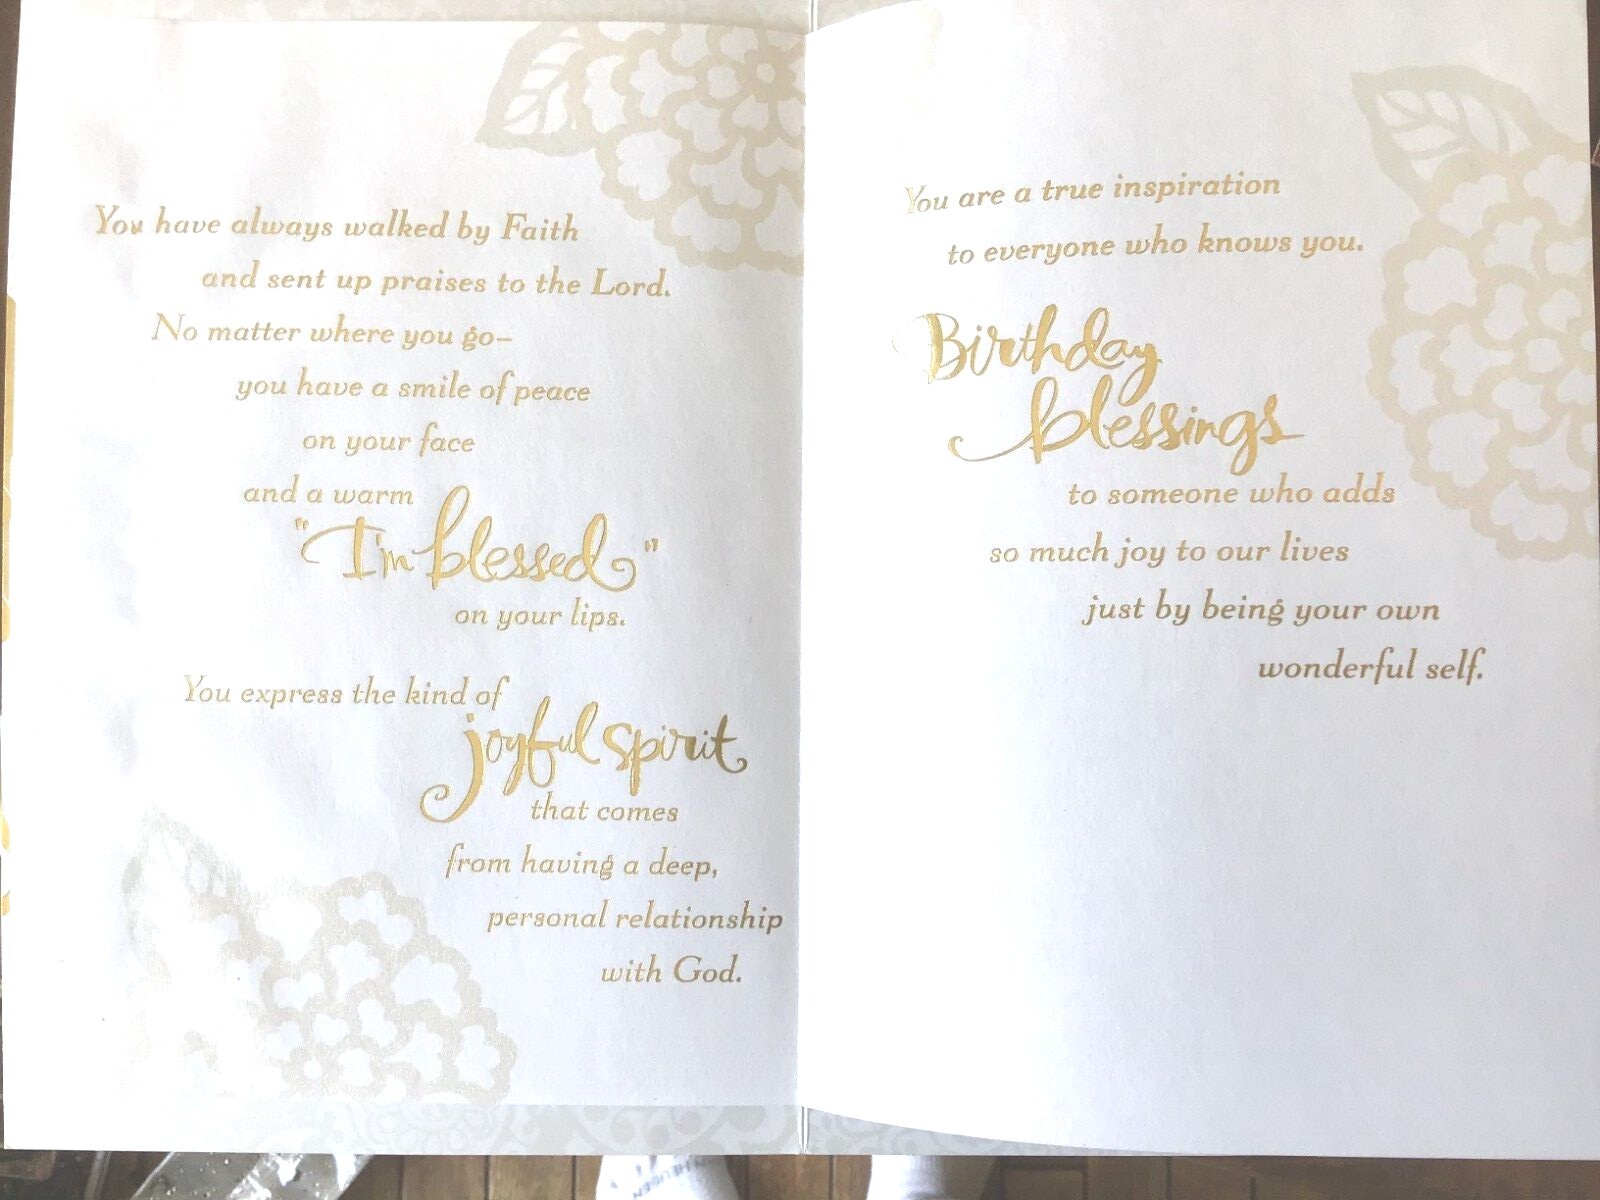 You have always walked by Faith
and sent up praises to the Lord.
No matter where you go–
you have a smile of peace
on your face
and a warm
"I'm blessed"
on your lips.
You express the kind of
joyful spirit
that comes
from having a deep,
personal relationship
with God.
You are a true inspiration
to everyone who knows you.
Birthday
blessings
to someone who adds
so much joy to our lives
just by being your own
wonderful self.